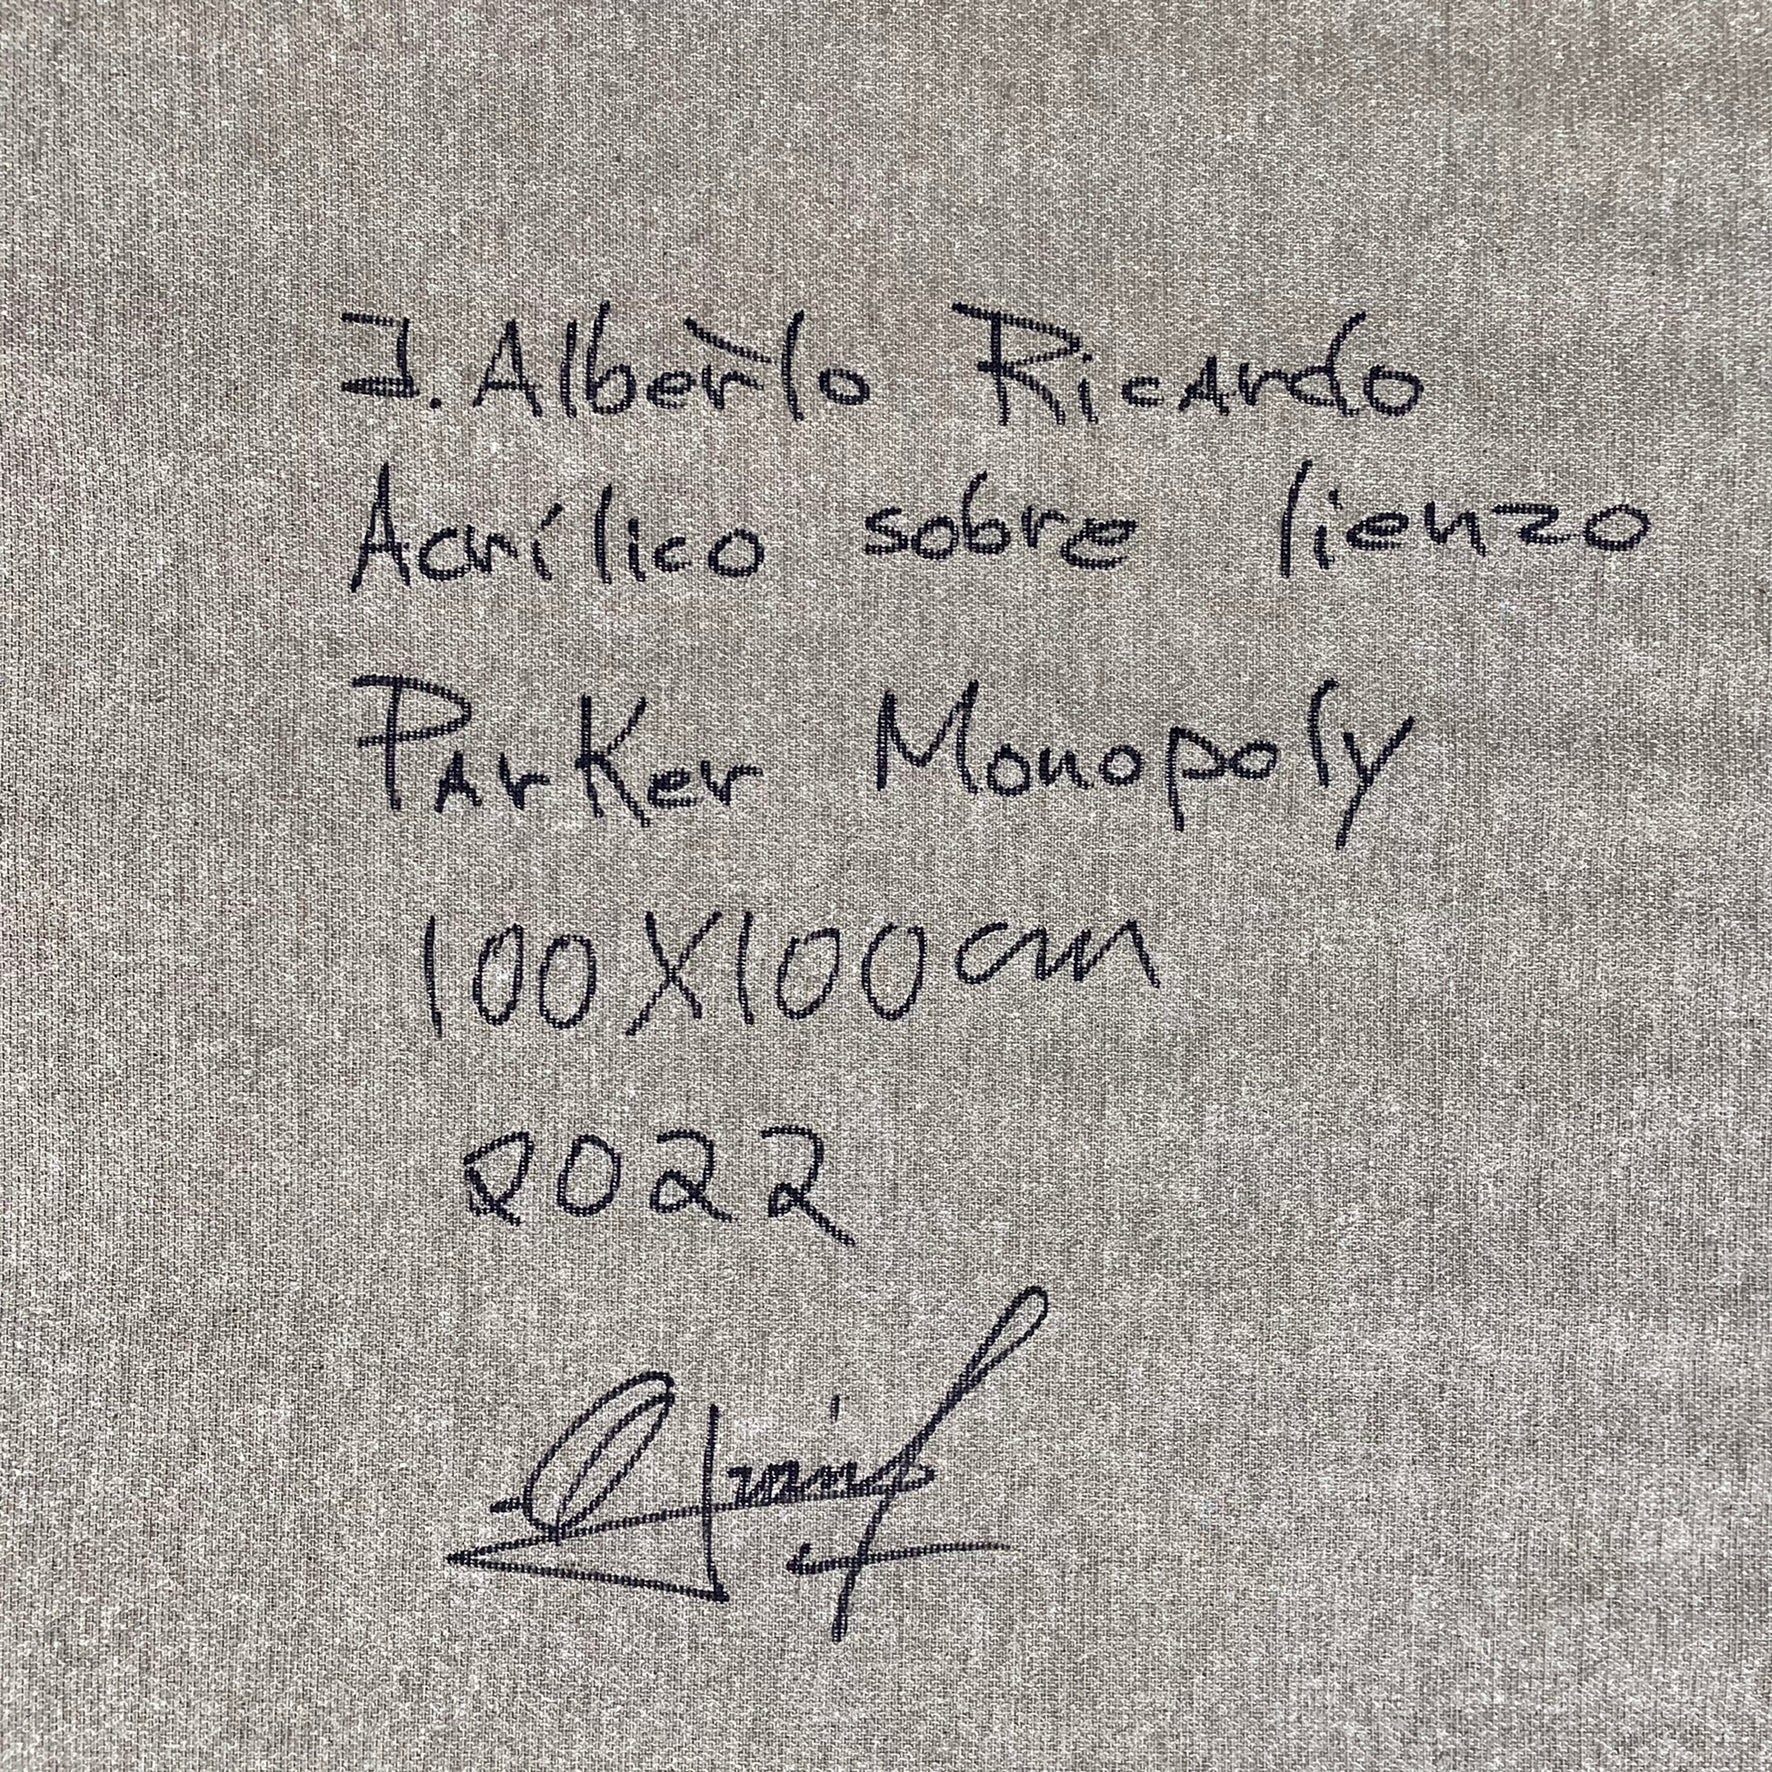 J. Alberto Ricardo
Acrílico sobre lienzo
Parker Monopoly
100X100cm
2022